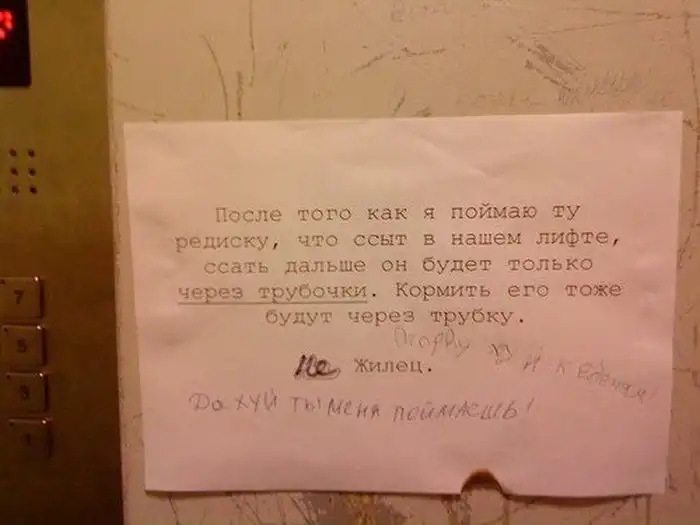 После того как я поймаю ту
редиску, что ссыт в нашем лифте,
ссать дальше он будет только
через трубочки. Кормить его тоже
будут через трубку.
Не Жилец.
Да хуй ты меня поймаешь!
7
5
3
1